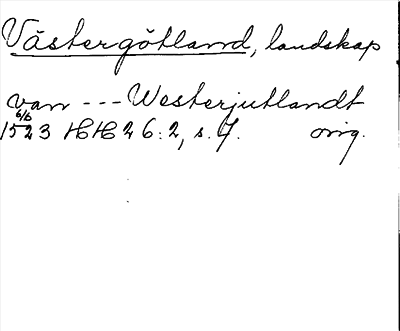 Västergötland, landskap
van --- Westerjutlandt
6/6
1523 HH 26:2, s. 7. orig.